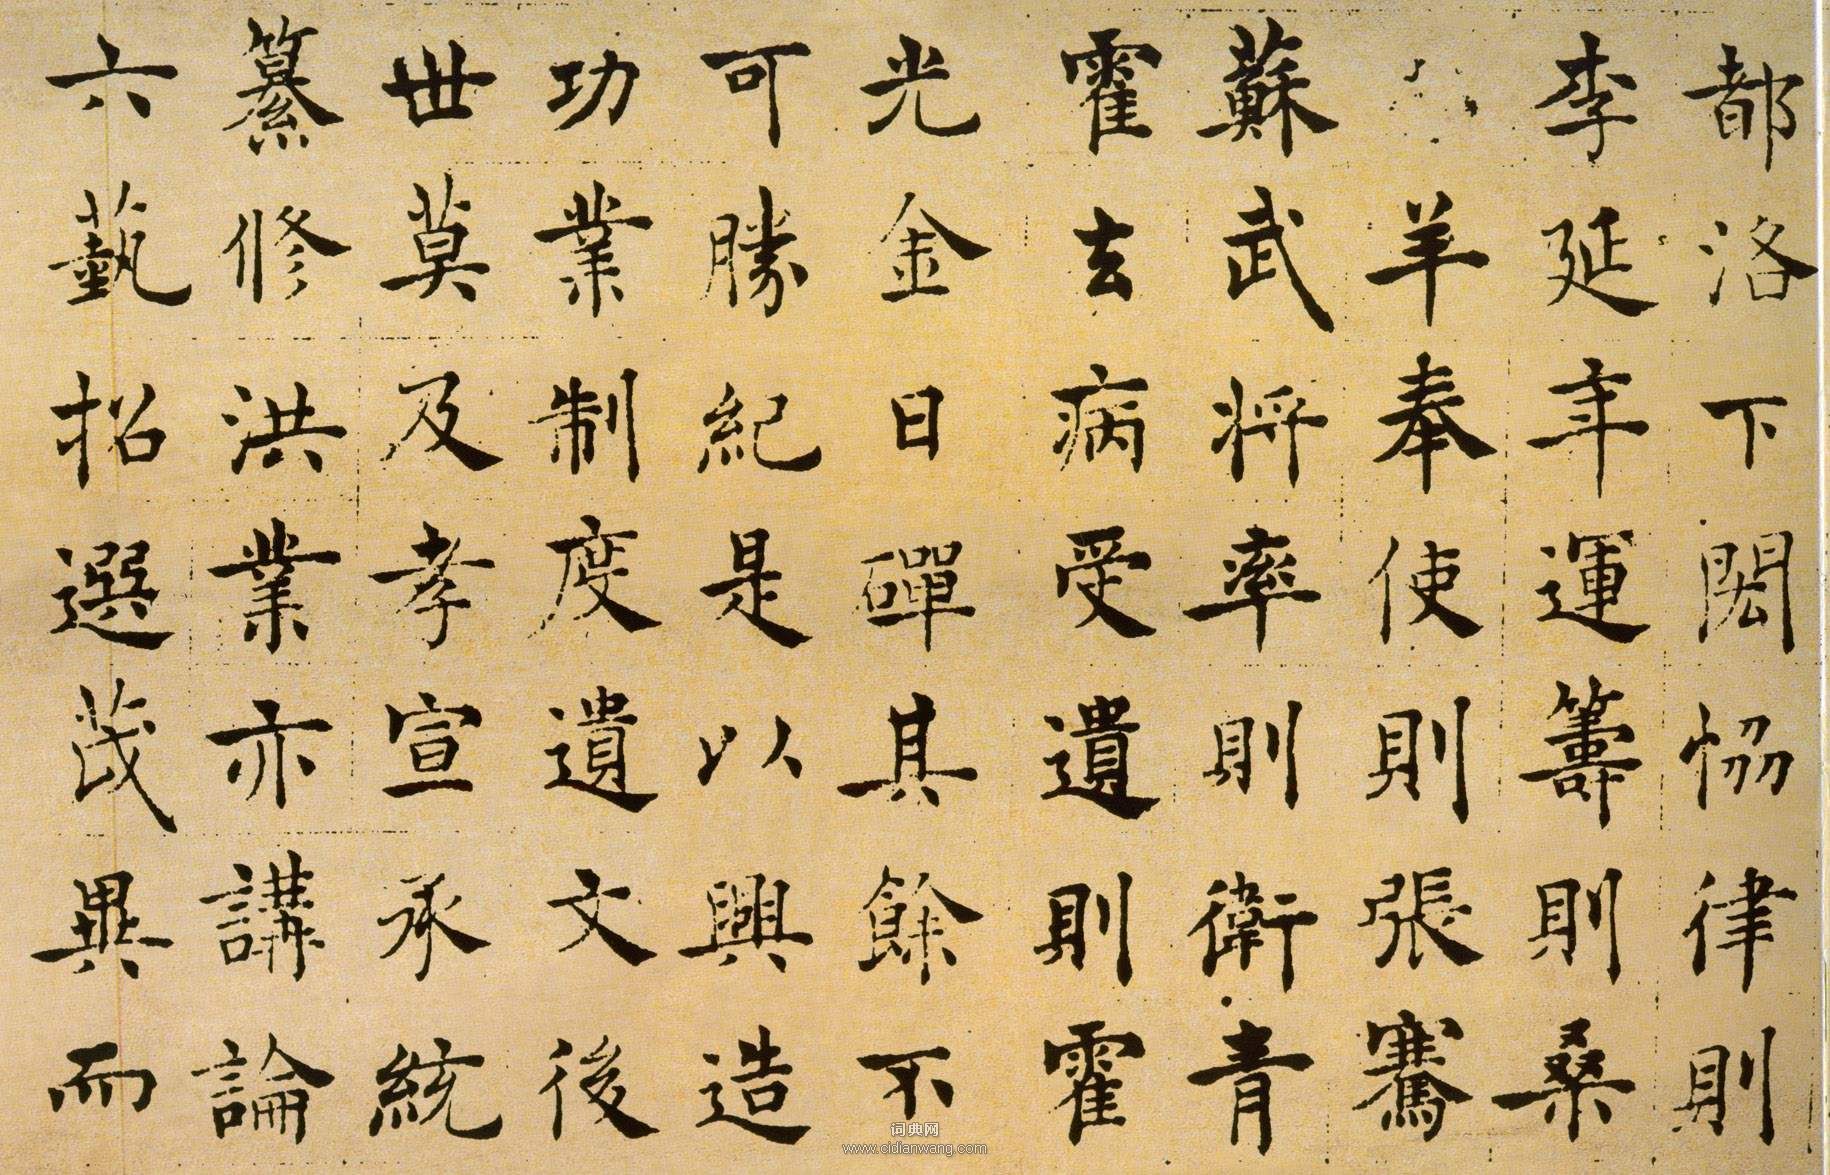 都洛下閎恊律則
李延年運籌則桑
羊奉使則張騫
蘇武将率則衛青
霍去病受遺則霍
光金日磾其餘不
可勝紀是以興造
功業制度遺文後
世莫及孝宣承統
纂修洪業亦講論
六藝招選茂異而
词典网
www.cidianwang.com